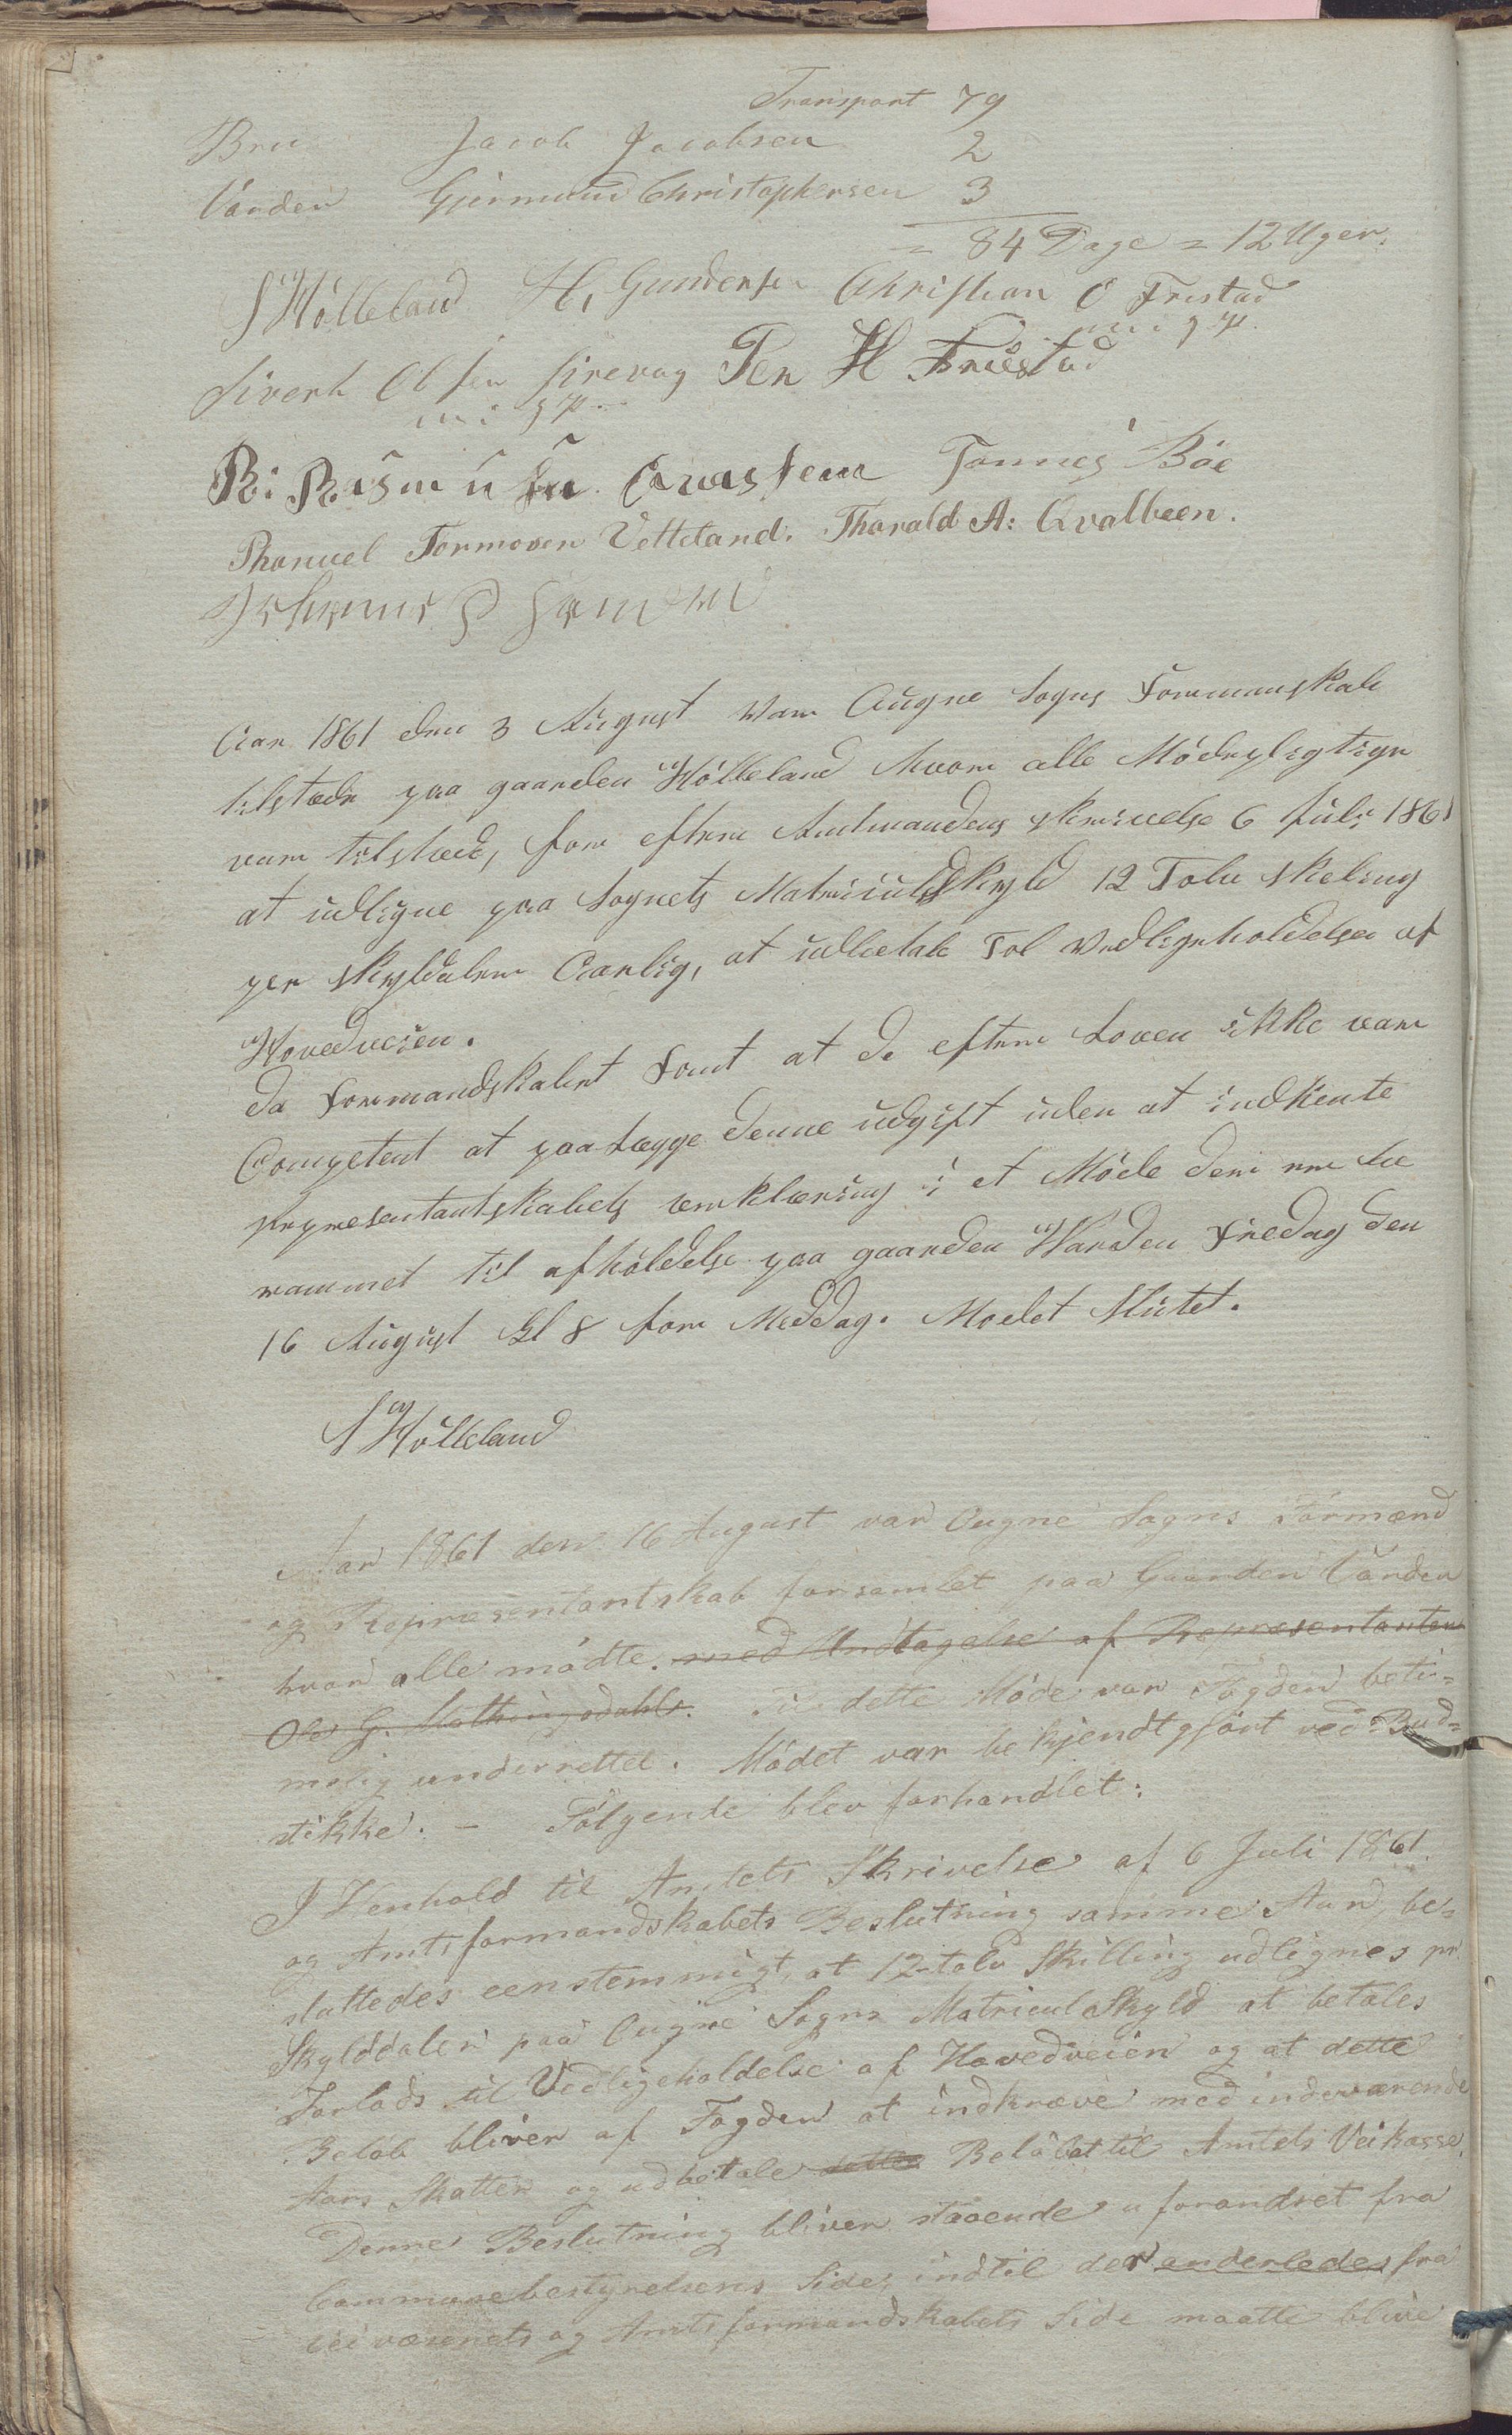 Transport 79
Bru Jacob Jacobsen 2
Varden Gjermund Christophersen 3
= 84 Dage = 12 Uger.
S Hölleland H, Gundersen Christian O Frestad
m i g P.
Sivert Olsen Sirevag Per H Friestad
m i g P.
R: Rasmusen Qvassem Tønnes Böe
Thoruel Tormosen Vetteland. Tharald A: Qvalbeen.
Aar 1861 den 3 August Var Augne Sogns Formanskab
tilstæde paa gaarden Hölleland hvor alle Mödepligtige
var tilstæde, for efter Amtmandens skrivelse 6 Juli 1861
at udligne paa Sognets Matriculskyld 12 Tolv skeling
per skyldaler Aarlig, at udbetale Tol Vedligeholdelse af
Hovedveien.
da Formandskabet Fant at de efter Loven ikke var
Competent at paalægge denne udgift uden at indhente
Representantskabets erklæring i et Möde der er be
rammet til afholdelse paa gaarden Varden Fredag den
16 August Kl 8 for Meddag. Modet Slutet.
S Hölleland
Aar 1861 den 16 August var Ougne Sogns Formænd
og Representantskab forsamlet paa Gaarden Varden
hvor alle mödte. med Undtagelse af Representanten
Ole G. Mathingsdahl. Til dette Möde var Fogden beti-
melig underrettet. Mödet var bekjendtgjört ved Bud-
stikke. – Fölgende blev forhandlet:
I Henhold til Amtets Skrivelse af 6 Juli 1861.
og Amtsformandskabets Beslutning samme Aar, be-
sluttedes eenstemmigt, at 12-tolv Skilling udlignes pr
Skylddaler paa Ougne Sogns MatriculSkyld at betales
Forlods til Vedligeholdelse af Hovedveien og at dette
Belöb bliver af Fogden at indkræve med indeværende
Aars Skatter og udbetale dette Belöbet til Amtets Veikasse.
Denne Beslutning bliver staaende uforandret fra
Communebestyrelsens Side, indtil der anderledes fra
Veivæsenets og Amtsformandskabets Side maatte blive